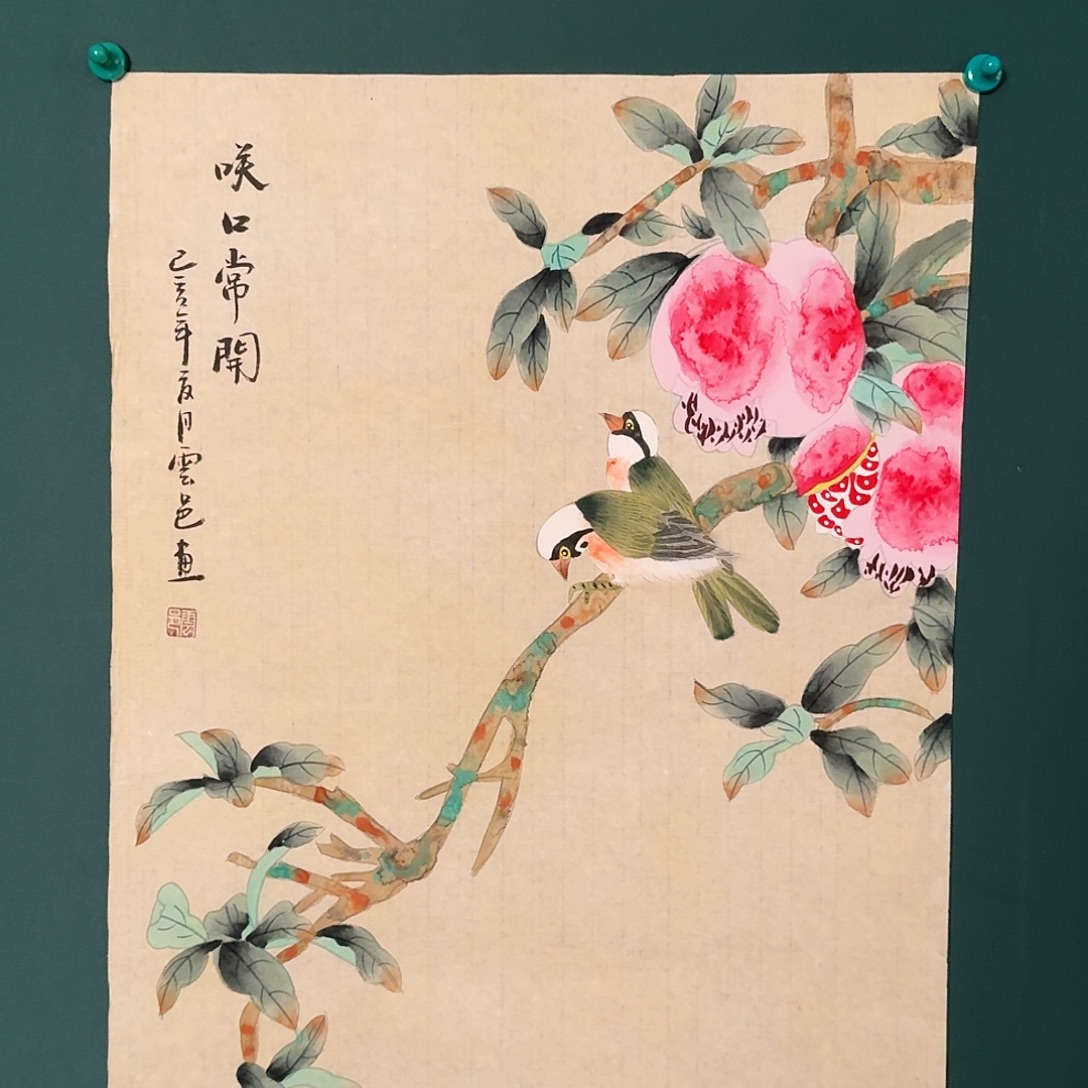 咲口常開
己亥年夏月雲邑畫